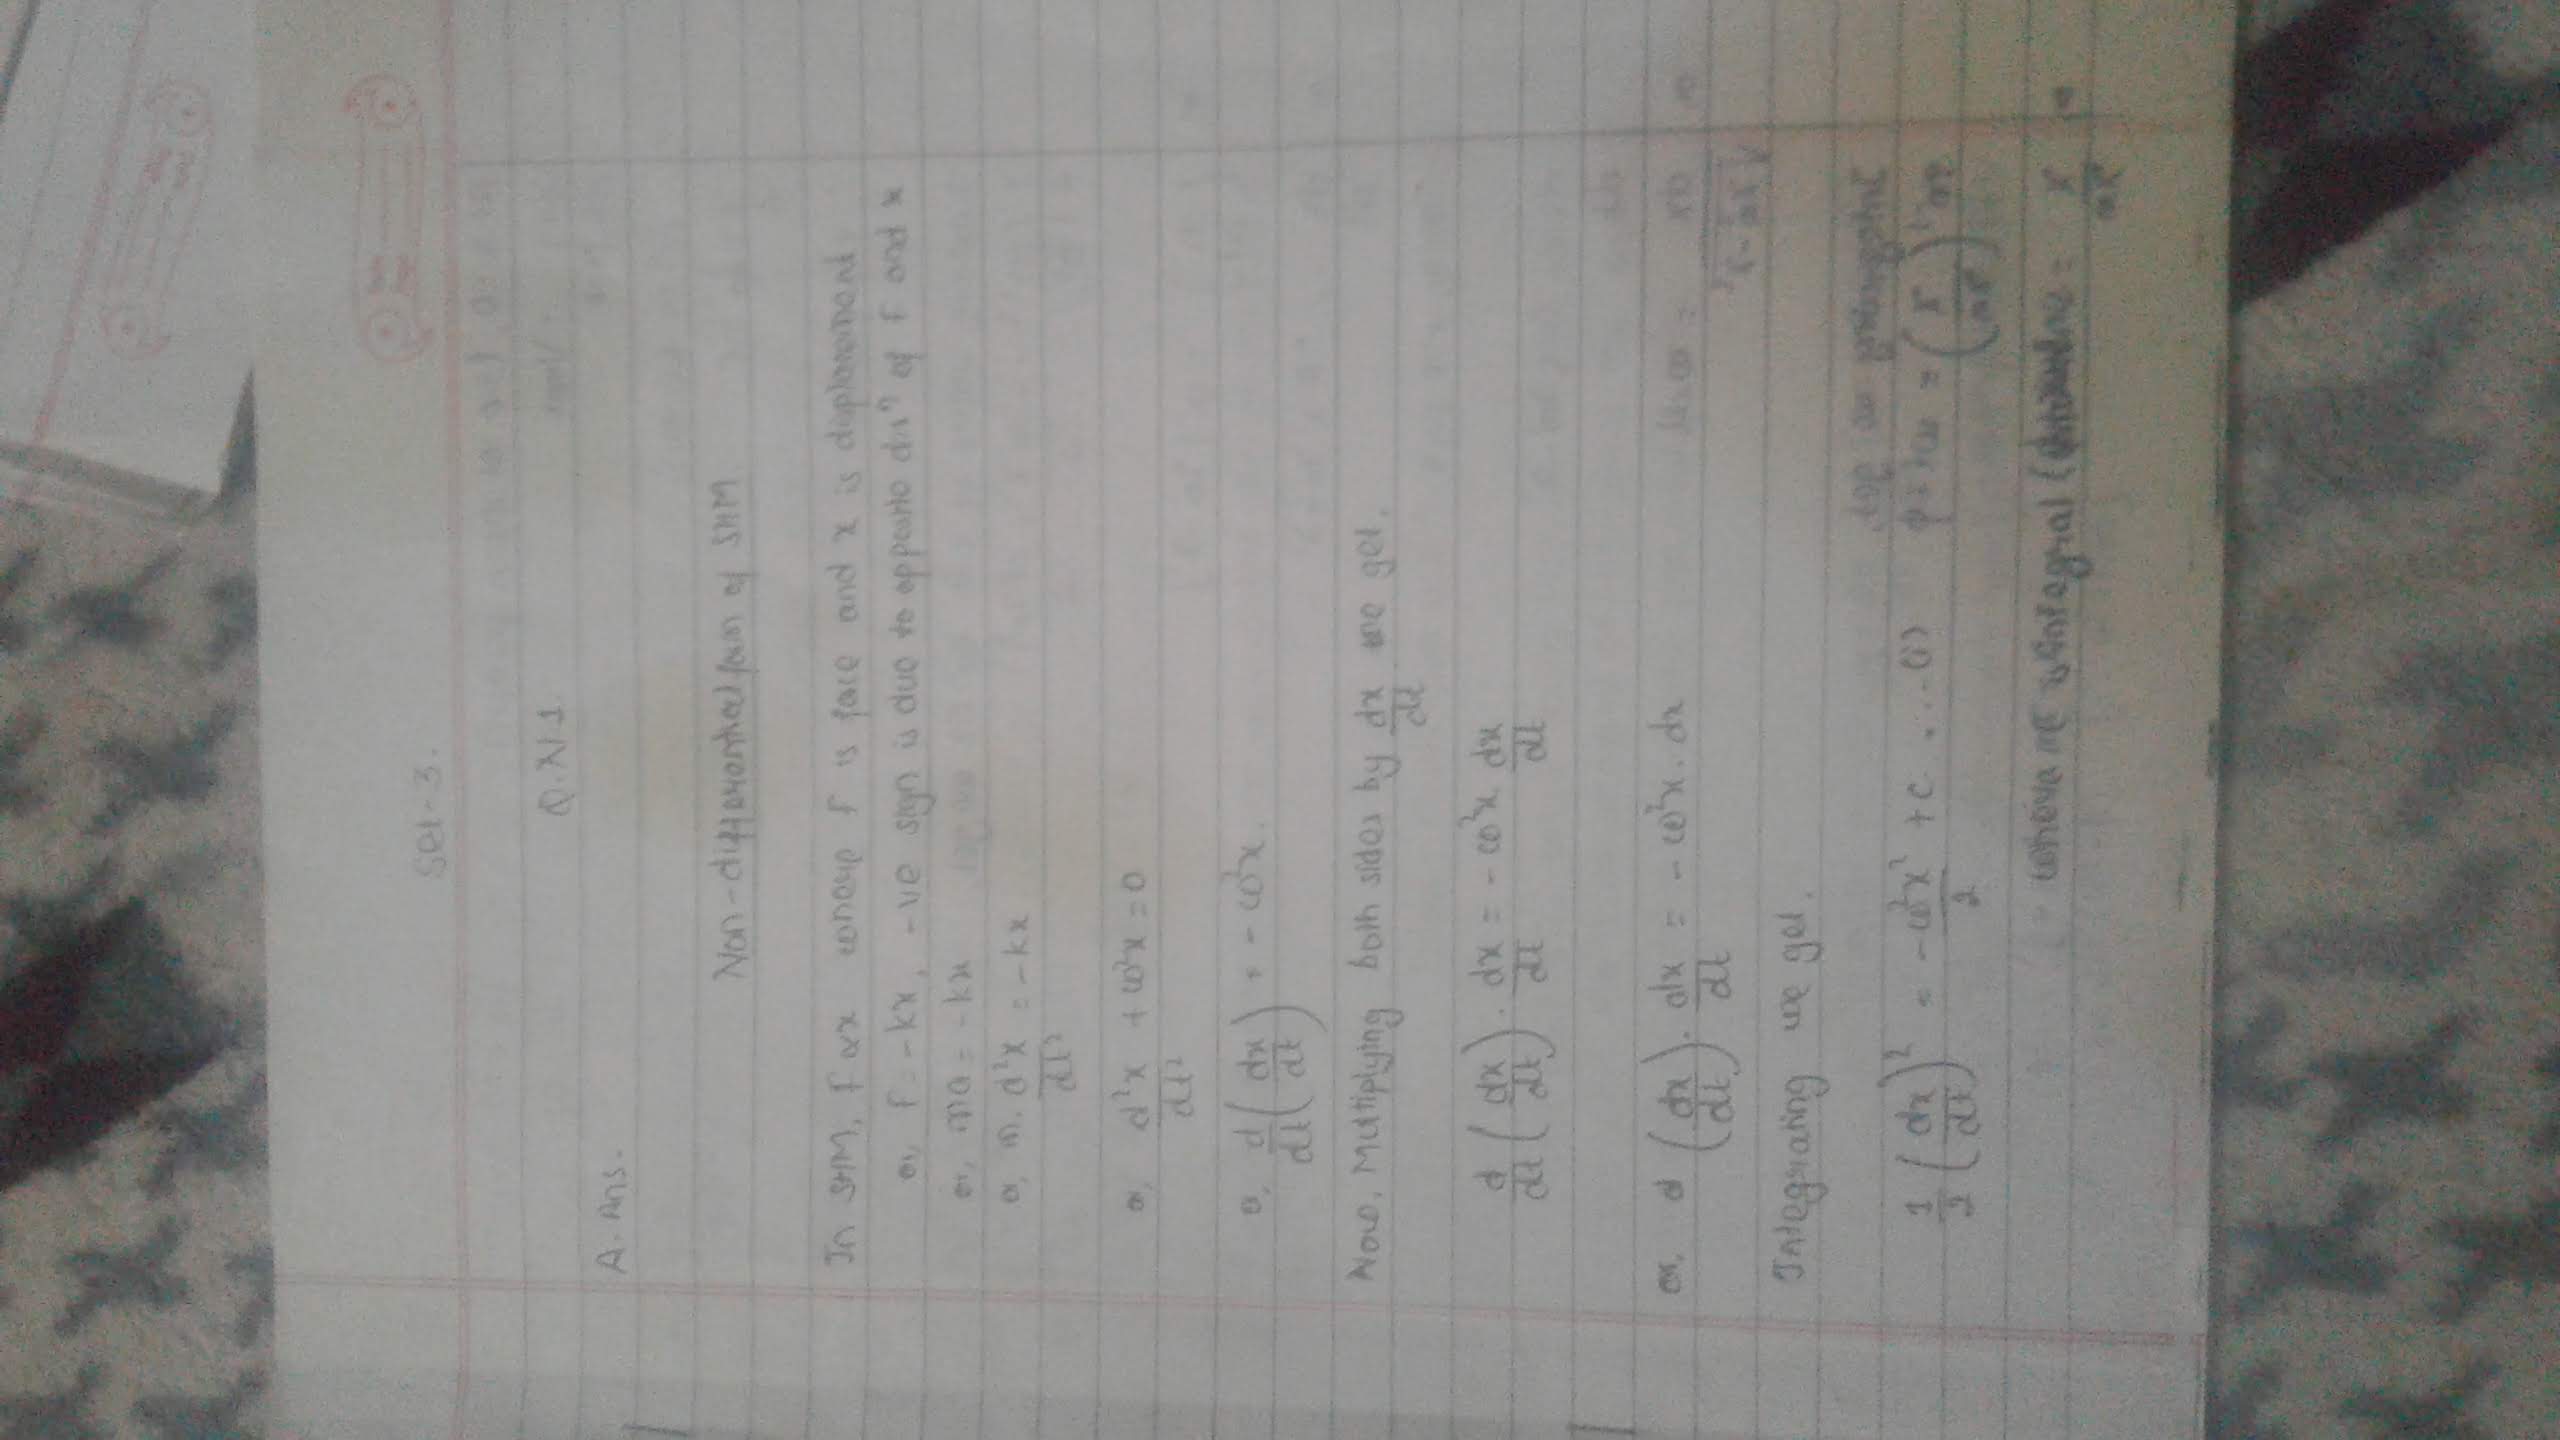 Set-3.
Q.N 1.
A. Ans.
Non-differential form of SHM
In SHM, F ∝ x where F is force and x is displacement
or, F = -kx, -ve sign is due to opposite dirⁿ of F and x
or, ma = -kx
or, m. d²x/dt² = -kx
or, d²x/dt² + ω²x = 0
or, d/dt (dx/dt) = -ω²x.
Now, Multiplying both sides by dx/dt we get,
d/dt (dx/dt) . dx/dt = -ω²x. dx/dt
or. d (dx/dt) . dx/dt = -ω²x. dx
Integrating we get,
1/2 (dx/dt)² = -ω²x²/2 + c. ...(i)
where is integral